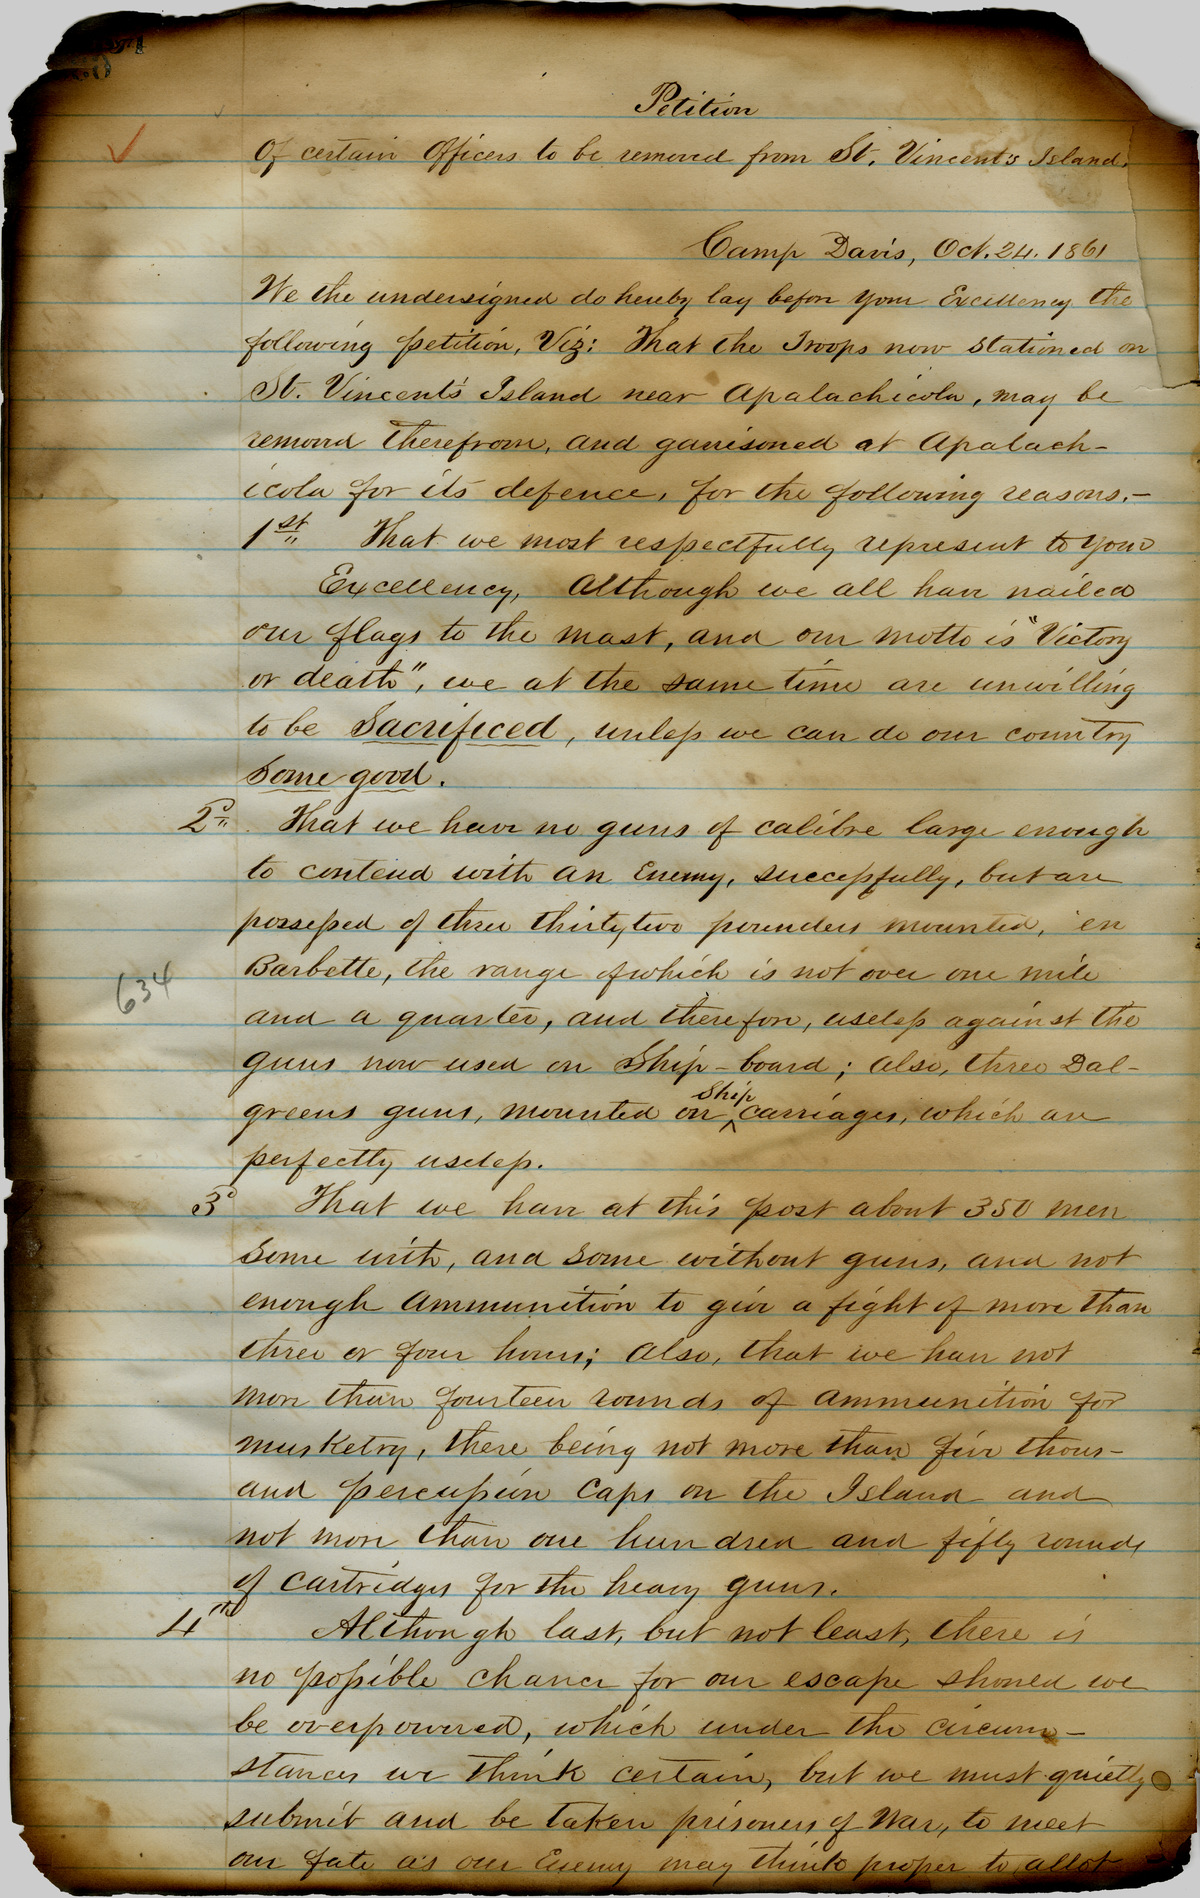 Petition
Of certain Officers to be removed from St. Vincent's Island.
Camp Davis, Oct. 24. 1861
We the undersigned do hereby lay before your Excellency the
following petition, Viz: That the Troops now stationed on
St. Vincent's Island near Apalachicola, may be
removed therefrom, and garrisoned at Apalach-
icola for its defence, for the following reasons.-
1st That we most respectfully represent to your
Excellency, Although we all have nailed
our flags to the mast, and our motto is "Victory
or death", we at the same time are unwilling
to be Sacrificed, unless we can do our country
Some good.
2d That we have no guns of calibre large enough
to contend with an Enemy, successfully, but are
possessed of three thirtytwo pounders mounted, en
Barbette, the range of which is not over one mile
and a quarter, and therefore, useless against the
guns now used on Ship-board; also, three Dal-
greens guns, mounted on Ship carriages, which are
perfectly useless.
3d That we have at this post about 350 men
Some with, and Some without guns, and not
enough Ammunition to give a fight of more than
three or four hours; Also, that we have not
more than fourteen rounds of Ammunition for
musketry, there being not more than five thous-
and percussion Caps on the Island and
not more than one hundred and fifty rounds
of Cartridges for the heavy guns.
634
4th Although last, but not least, there is
no possible chance for our escape should we
be overpowered, which under the circum-
stances we think certain, but we must quietly
submit and be taken prisoners of War, to meet
our fate as our Enemy may think proper to allot